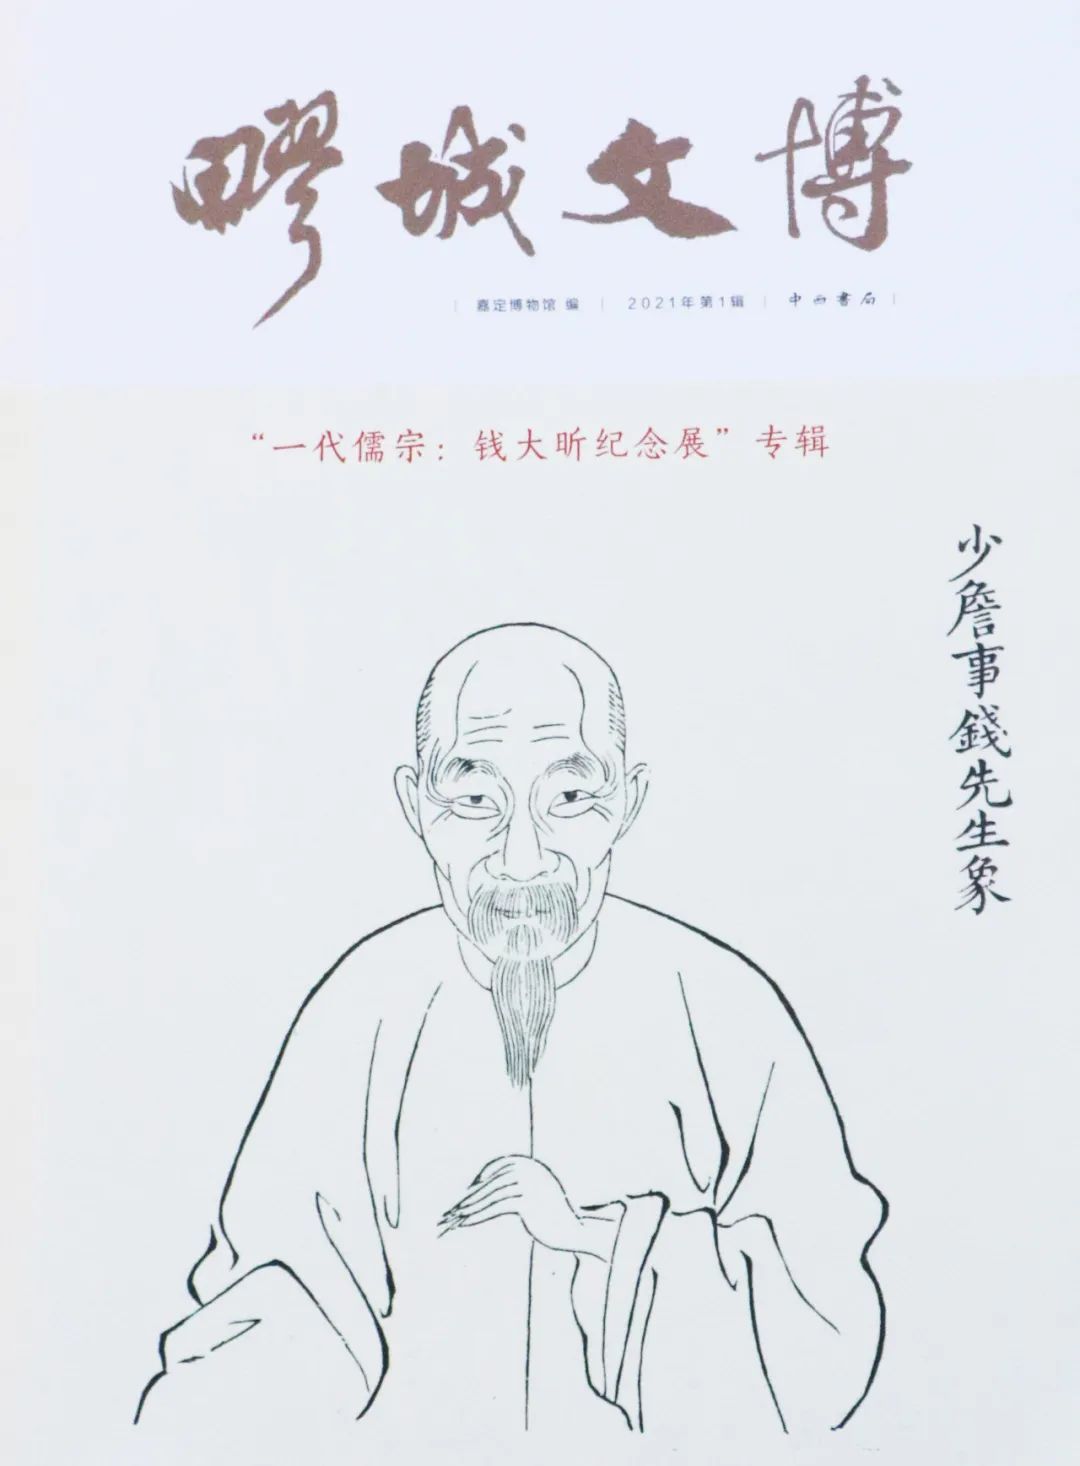 疁城文博
嘉定博物馆 编 | 2021年第1辑 | 中西書局
“一代儒宗：钱大昕纪念展”专辑
少詹事錢先生象